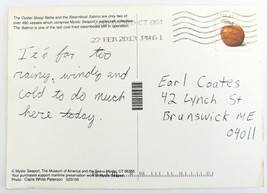 The Oyster Sloop Nellie and the Steamboat Sabino are only two of
over 480 vessels which comprise Mystic Seaport's watercraft collection.
27 FEB 2013 PM 6 L
It's far too
rainy, windy and
cold to do much
here today.
Earl Coates
42 Lynch St
Brunswick ME
04011
© Mystic Seaport, The Museum of America and the Sea, Mystic, CT 06355
Your purchase support maritime preservation
© Mystic Seaport
Photo: Claire White-Peterson